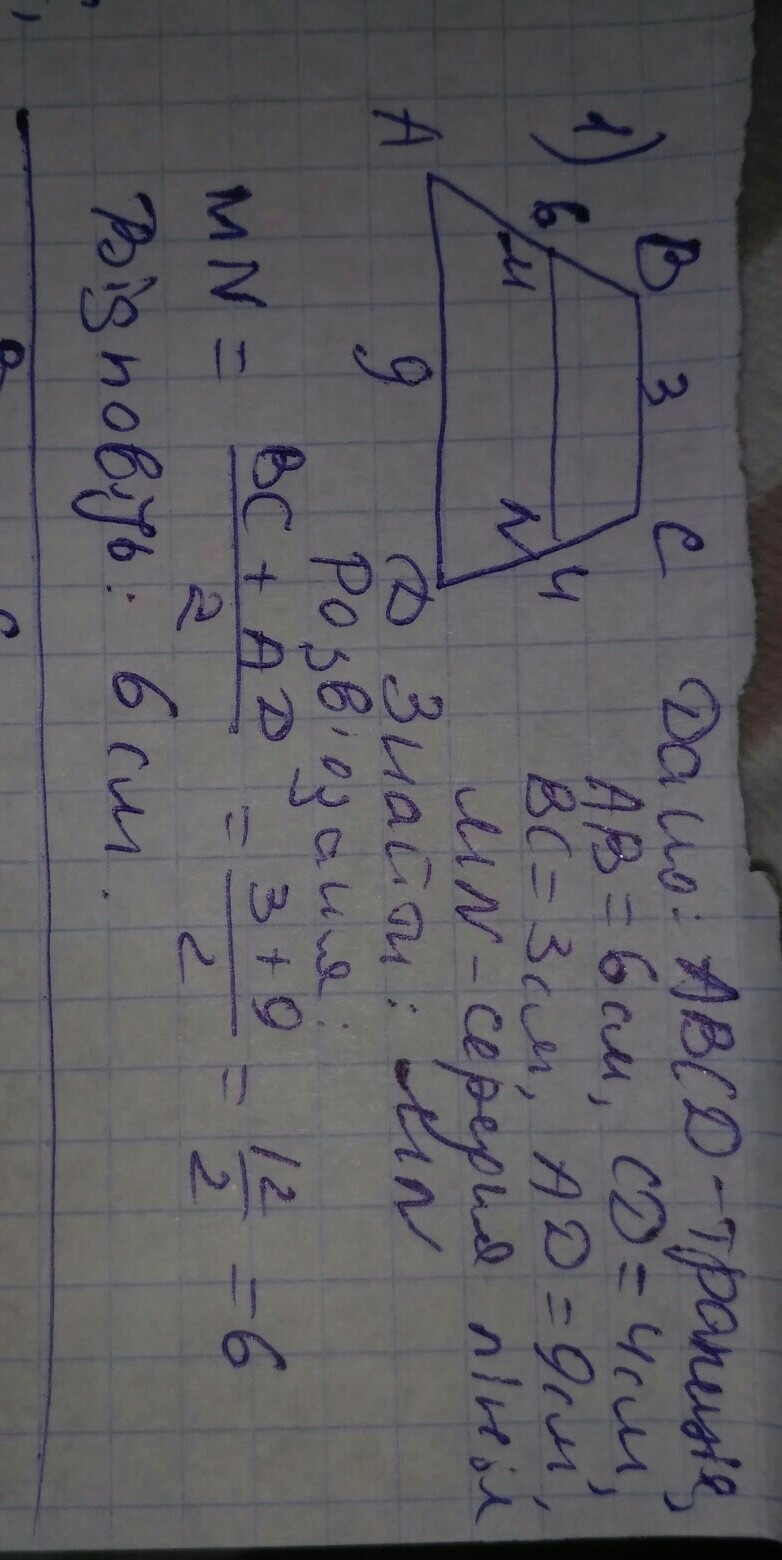 1)
B 3 C
6 4
M N
A 9 D
Дано: ABCD - трапеція,
AB = 6 см, CD = 4 см,
BC = 3 см, AD = 9 см,
MN - середня лінія
Знайти: MN
Розв'язання:
MN = BC + AD / 2 = 3 + 9 / 2 = 12 / 2 = 6
Відповідь: 6 см.